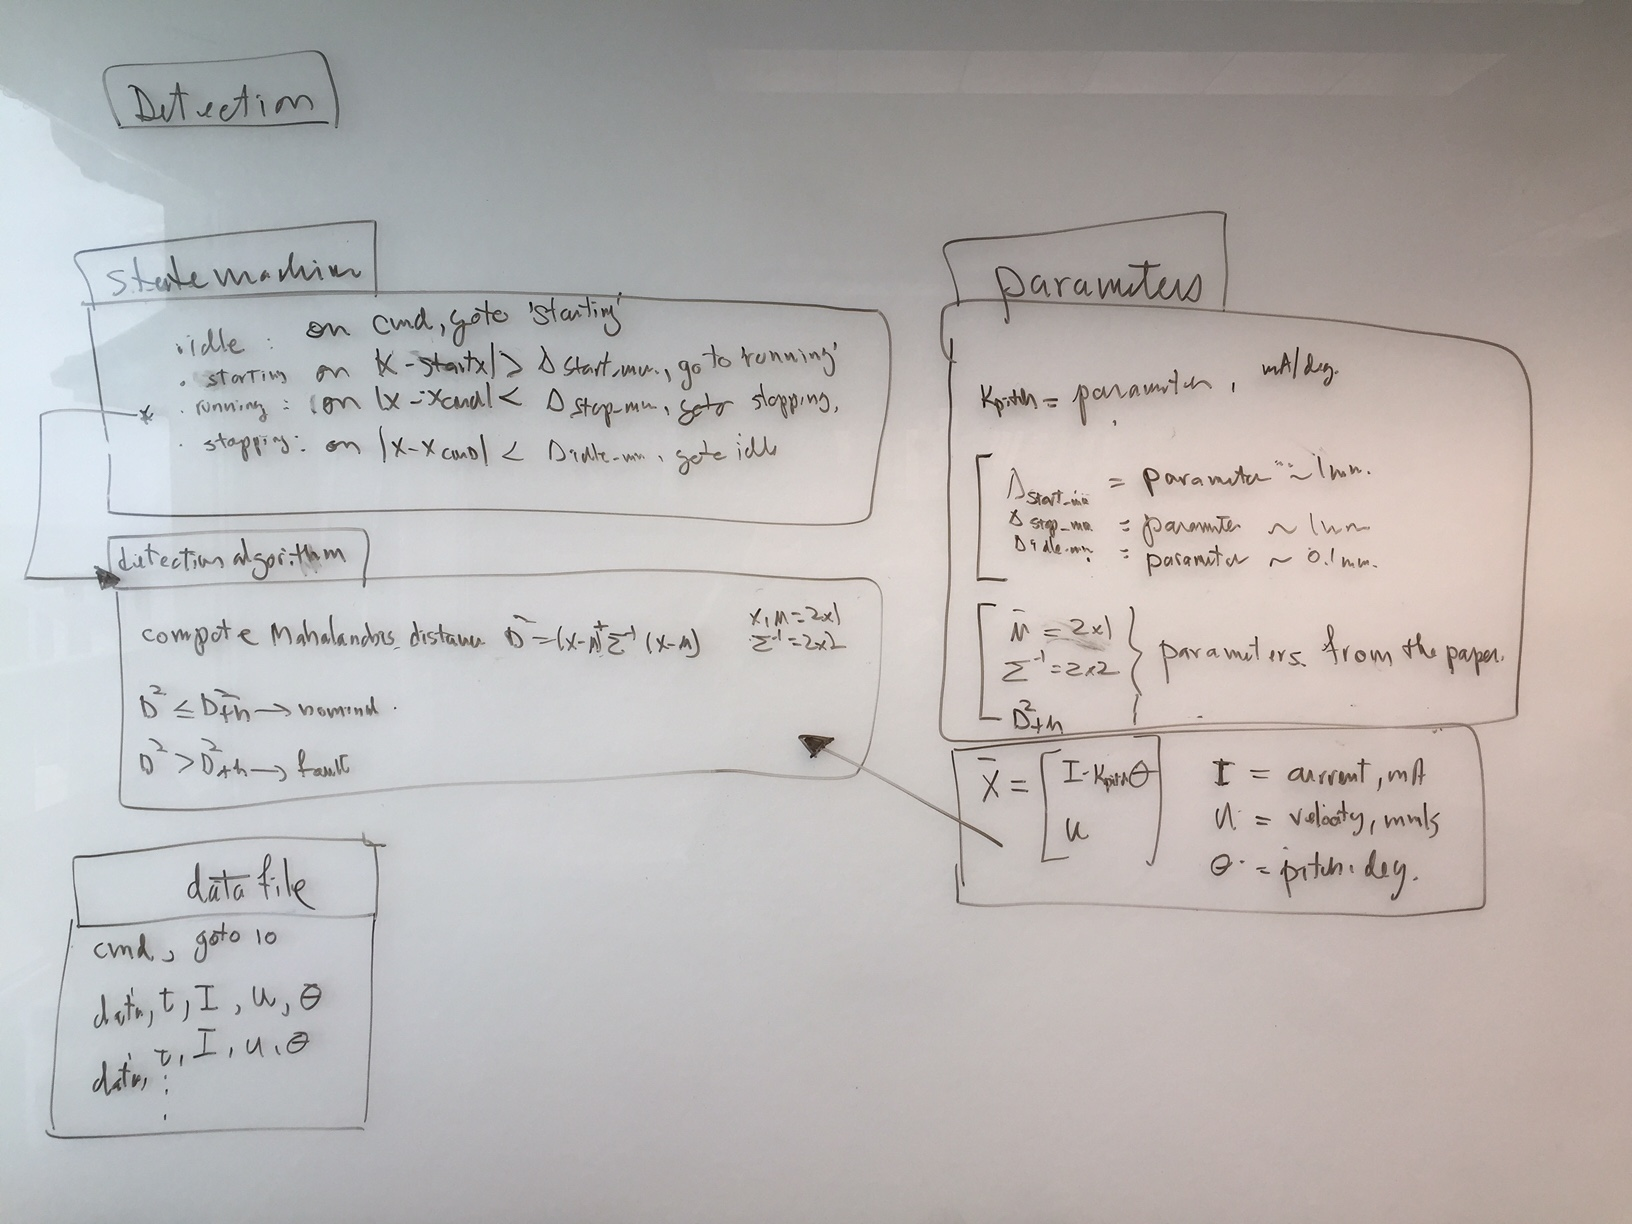 Detection
state machine
· idle : on cmd, goto 'starting'
· starting on |X - startx| > Δ start_mm, go to 'running'
* · running : on |X - Xcmd| < Δ stop_mm, goto stopping,
· stopping : on |X - Xcmd| < Δ idle_mm, gote idle
detection algorithm
compute Mahalanobis distance D² = (X-M)ᵀ Σ⁻¹ (X-M)
X, M = 2x1
Σ⁻¹ = 2x2
D² ≤ D²th → nominal.
D² > D²th → fault
data file
cmd, goto 10
data, t, I, u, θ
data, t, I, u, θ
parameters
Kpitch = parameter, mA/deg.
Δstart_mm = parameter ~ 1mm.
Δstop_mm = parameter ~ 1mm
Δidle_mm = parameter ~ 0.1mm.
M̄ = 2x1
Σ⁻¹ = 2x2
} parameters from the paper.
D²th
X̄ = [ I - Kpitch θ
u ]
I = current, mA
u = velocity, mm/s
θ = pitch, deg.